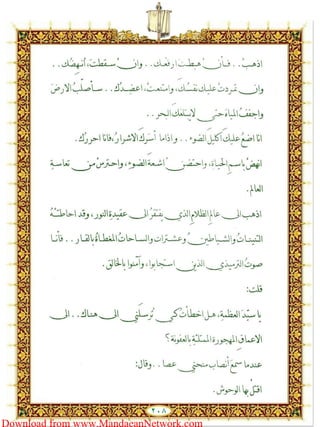 اذهبْ.. فـأنْ هبطتَ ارفعك.. وانْ سـقطتَ، أنهضُك..
وان تمردتْ عليك نفسُك، واستعبتْ، اعضدُك.. سـأصلّبُ الارضَ
واجففُ المياهَ حتى لا يبتلعَكَ البحر..
انا اضعُ عليكَ اكليلَ الضوءِ.. واذاما أسرَكَ الاشرارُ، فانا احررُك.
انهضْ باسمِ الحياةِ، واحتضن اشعةَ الضوءِ، واحترسْ من تعاسةِ
العالم.
اذهب الى عالمِ الظلامِ الذي يفتقرُ الى عقيدةِ النور، وقد احاطتْهُ
التنيناتُ والشياطين وعشتراتُ والساحاتُ المغطاةُ بالقار.. فأنا
صوتُ الترميذي الذين استجابوا، وآمنوا بالخالق.
قلت:
يا سيدَ العظمةِ، هل اخطأتُ كي تُرسلَني الى هناك.. الى
الاعماقِ المهجورةِ المملئةِ بالعفونة؟
عندما سمعَ أنصابَ منحني عصا.. وقال:
اقتلْ بها الوحوش.
٢٠٨
Download from www.MandaeanNetwork.com